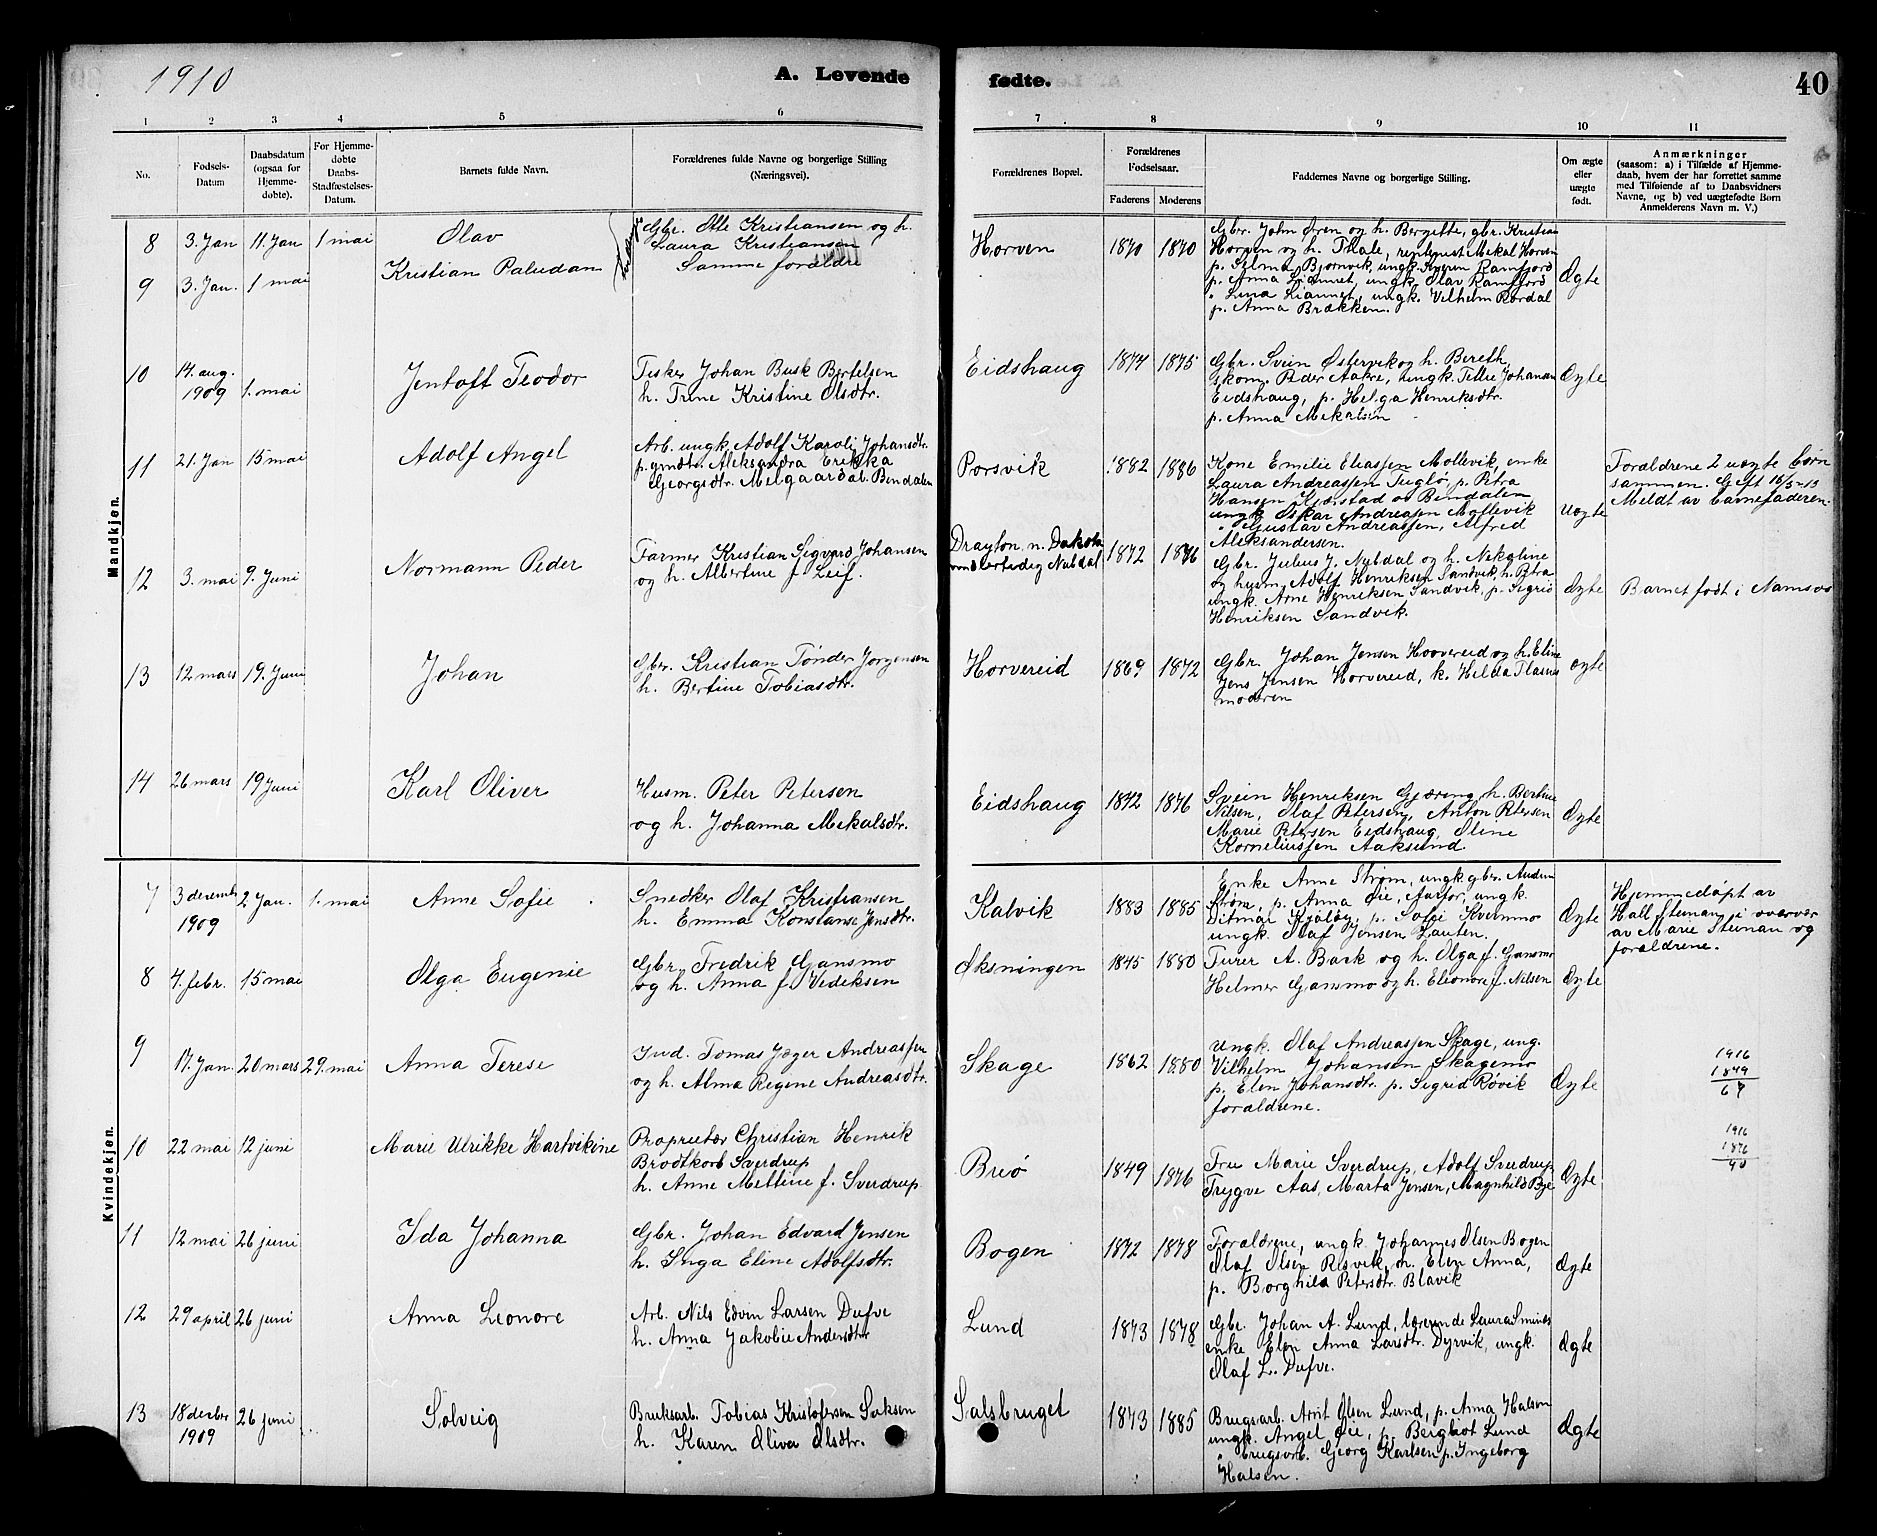 1910
A. Levende
fødte.
40
1 2 3 4 5 6
7 8 9 10 11
No.
Fødsels-
Datum
Daabsdatum
(ogsaa for
Hjemme-
døbte).
For Hjemme-
døbte
Daabs-
Stadfæstelses-
Datum.
Barnets fulde Navn.
Forældrenes fulde Navne og borgerlige Stilling
(Næringsvei).
Forældrenes Bopæl.
Forældrenes
Fødselsaar.
Faderens Moderens
Faddernes Navne og borgerlige Stilling.
Om ægte
eller
uægte
født.
Anmærkninger
(saasom: a) i Tilfælde af Hjemme-
daab, hvem der har forrettet samme
med Tilføiende af to Daabsvidners
Navne, og b) ved uægtefødte Børn
Anmelderens Navn m. V.)
Mandkjøn.
8 3. Jan 11. Jan 1 mai Olav
Gbr. Otte Kristiansen og h.
Laura Kristiansen
Horven 1870 1870
Gbr. John Øren og h. Bergitte, gbr. Kristian
Horven og h. Thale, Mekal Horven
9 3. Jan. 1 mai Kristian Paludan
Samme forældre
p. Selma Bjørnvik, ungk. Ramfjord
p. Anna Liannet, ungk. Olav Ramfjord
" Lina Liannet, ungk. Vilhelm Rørdal
p. Anna Brækken.
Ægte
10 14. aug.
1909 1. mai Jentoft Teodor
Fisker Johan Busk Bertelsen
h. Trine Kristine Olsdtr.
Eidshaug 1874 1875
Gbr. Svein Østervik og h. Bereth,
Gkom. Peder Aakre, ungk. Tellie Johansen
Eidshaug, p. Helga Henriksdtr.
p. Anna Mekalsen
Ægte
11 21. Jan 15 mai Adolf Angel
Arb. ungk. Adolf Karoli Johansdtr.
p. gmdtr. Aleksandra Erikka
Georgsdtr. Melgaardal. Bendalen
Porsvik 1882 1886
Kone Emelie Eliassen Mollevik, enke
Laura Andreassen Fuglø, p. Petra
Hansen Kjærstad av Bindalen
ungk. Oskar Andreasen Mollevik
" Gustav Andreassen, Alfred
Aleksandersen.
uægte
Forældrene 2 uægte børn
sammen. Gift 16/5-13
Meldt av barnefaderen.
12 3. mai 9. Juni Normann Peder
Farmer Kristian Sigvard Johansen
og h. Albertine f. Leif.
Drayton, n. Dakota
midlertidig Nubdal
1872 1876
Gbr. Julius J. Nubdal og h. Nikoline
og husm. Adolf Henriksen Sandvik, h. Petra
ungk. Arne Henriksen Sandvik, p. Sigrid
Henriksen Sandvik.
Ægte
Barnet født i Namsos
13 12 mars 19. Juni Johan
Gbr. Kristian Tønder Jørgensen
h. Bertine Tobiasdtr.
Horvereid 1869 1872
Gbr. Johan Jensen Horvereid og h. Eline
Jens Jensen Horvereid, k. Hilda Flasnes
moderen
ægte
14 26 mars 19 Juni Karl Oliver
Husm. Peter Petersen
og h. Johanna Mekalsdtr.
Eidshaug 1872 1876
Svein Henriksen Gjæring, h. Bertine
Nilsen, Olaf Petersen, Anton Petersen
Marie Petersen Eidshaug, Oline
Korneliussen Aaksund.
Ægte
Kvindekjøn.
7 3 decemb
1909 2 Jan. 1. mai Anne Sofie
Snedker Olaf Kristiansen
h. Emma Konstanse Jensdtr.
Kalvik 1883 1885
Enke Anne Strøm, ungk. gbr. Audun
Strøm, p. Anna Øie, Aarfor, ungk.
Ditmar Kjøløy, p. Sofie Kvernmo
ungk. Olaf Jensen Lauten.
Ægte
Hjemmedøpt av
Hall Steinan i overvær
av Marie Steinan og
forældrene.
8 4. febr. 15 mai Olga Eugenie
Gbr. Fredrik Gansmo
og h. Anna f. Vediksen
Øksningen 1845 1880
Turer A. Bark og h. Olga f. Gansmo
Helmer Gansmo og h. Eleonore f. Nilsen
Ægte
9 17. Jan. 20 mars 29. mai Anna Terese
Ind. Tomas Jæger Andreassen
og h. Alma Regine Andreasdtr.
Skage 1862 1880
ungk. Olaf Andreassen Skage, ung.
Vilhelm Johansen Skagemo
p. Elen Johansdtr. p. Sigrid Røvik
forældrene.
Ægte
1916
1849
67
10 22 mai 12 juni Marie Ulrikke Hartvikine
Proprietær Christian Henrik
Brodtkorb Sverdrup
h. Anne Mettine f. Sverdrup
Breø 1849 1876
Fru Marie Sverdrup, Adolf Sverdrup
Trygve Aas, Marta Jensen, Magnhild Bye
Ægte
1916
1876
40
11 12 mai 26 juni Ida Johanna
Gbr. Johan Edvard Jensen
h. Inga Eline Adolfsdtr.
Bogen 1872 1878
Forældrene, ungk. Johannes Olsen Bogen
Olaf Olsen Risvik, m. Elen Anna,
p. Borghild Petersdtr. Blavik
Ægte
12 29 april 26 juni Anna Leonore
Arb. Nils Edvin Larsen Dufve
h. Anna Jakobie Andersdtr
Lund 1873 1878
Gbr. Johan A. Lund, lærerinde Laura Smines
enke Elen Anna Larsdtr. Dyrvik, ungk.
Olaf L. Dufve.
Ægte
13 18 decber
1909 26 juni Solveig
Bruksarb. Tobias Kristofersen Saksen
h. Karen Oliva Olsdtr.
Salsbruget 1873 1885
Brugsarb. Arnt Olsen Lund, p. Anna Halsen
ungk. Angel Øie, p. Bergliot Lund
" brugsarb. Georg Karlsen, p. Ingeborg
Halsen.
Ægte